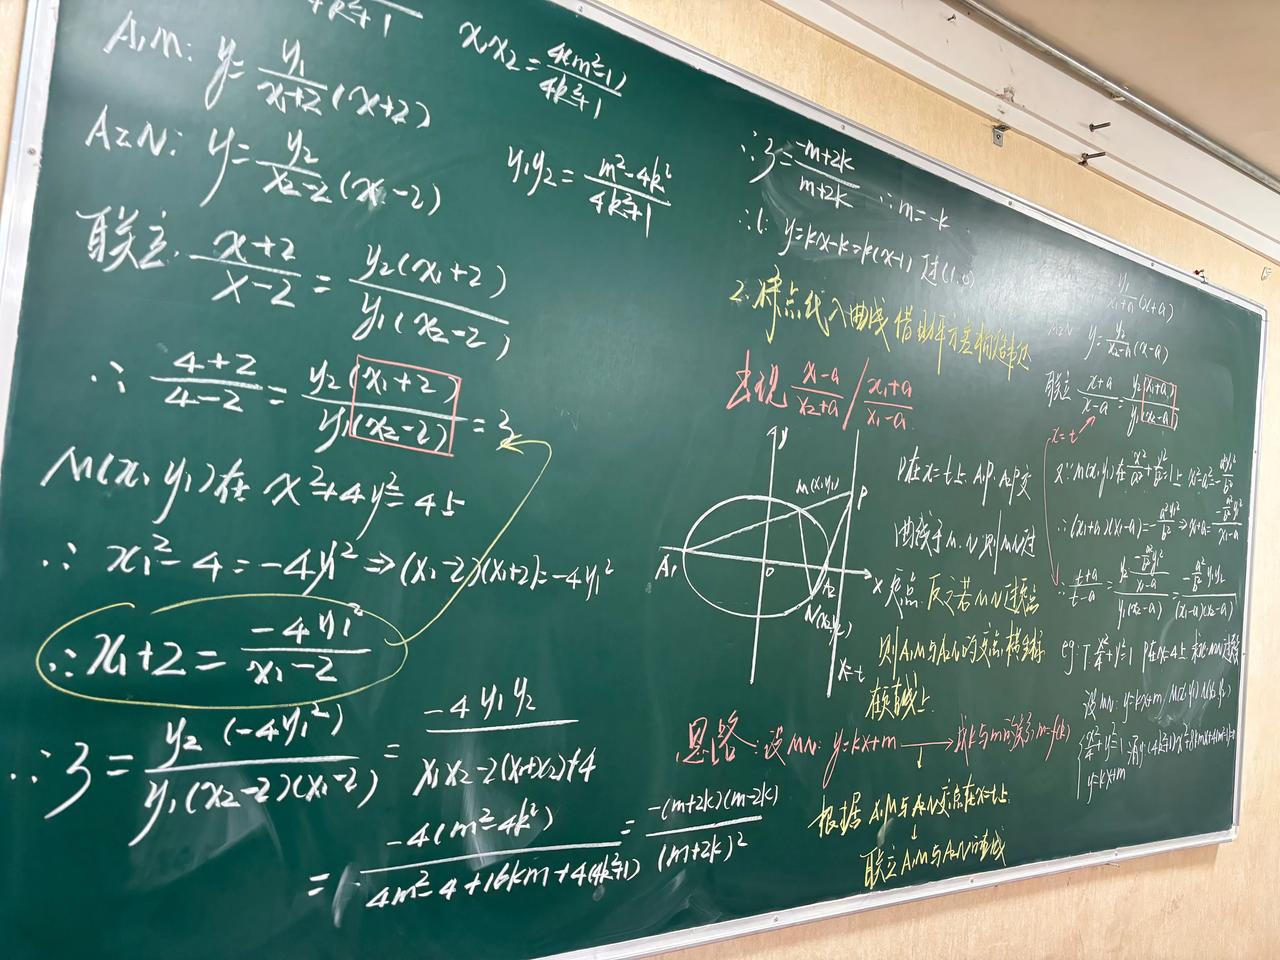 4k²+1
x₁x₂=4(m²-1)/4k²+1
A₁M: y=y₁/x₁+2 (x+2)
A₂N: y=y₂/x₂-2 (x-2)
y₁y₂=m²-4k²/4k²+1
联立. x+2/x-2 = y₂(x₁+2)/y₁(x₂-2)
∴ 4+2/4-2 = y₂(x₁+2)/y₁(x₂-2) = 3
M(x₁ y₁)在 x²+4y²=4上
∴ x₁²-4=-4y₁² ⇒(x₁-2)(x₁+2)=-4y₁²
∴ x₁+2 = -4y₁²/x₁-2
∴ 3 = y₂(-4y₁²)/y₁(x₂-2)(x₁-2) = -4y₁y₂/x₁x₂-2(x₁+x₂)+4
= -4(m²-4k²)/4m²-4+16km+4(4k²+1) = -(m+2k)(m-2k)/(m+2k)²
∴3=-m+2k/m+2k ∴m=-k
∴l: y=kx-k=k(x-1) 过(1,0)
2.将点代入曲线借助平方差构造韦达
出现 x₁-a/x₂+a / x₁+a/x₁-a
y
M(x₁y₁)
P
A₁
0
x
A₂
N(x₂y₂)
x=t
P在x=t上 A₁P. A₂P交
曲线于M.N 则MN过
定点. 反之若MN过定点
则A₁M与A₂N的交点横坐标
在定直线上
思路: 设MN: y=kx+m ⟶ 找k与m的关系m=f(k)
↓
根据 A₁M与A₂N交点在x=t上
↓
联立A₁M与A₂N直线
y₁/x₁+a (x+a)
A₂N y=y₂/x₂-a (x-a)
联立 x+a/x-a = y₂(x₁+a)/y₁(x₂-a)
x=t
又∵M(x₁y₁)在x²/a²+y²/b²=1上 x₁²-a²=-a²y₁²/b²
∴(x₁+a)(x₁-a)=-a²y₁²/b² ⇒x₁+a=-a²/b² y₁²/x₁-a
∴ t+a/t-a = y₂·-a²/b² y₁²/x₁-a / y₁(x₂-a) = -a²/b² y₁y₂/(x₁-a)(x₂-a)
eg: T: x²/4+y²=1 P在x=4上 求证:MN过定点
设MN: y=kx+m, M(x₁y₁) N(x₂y₂)
{x²/4+y²=1 消y:(4k²+1)x²+8kmx+4m²-4=0
y=kx+m